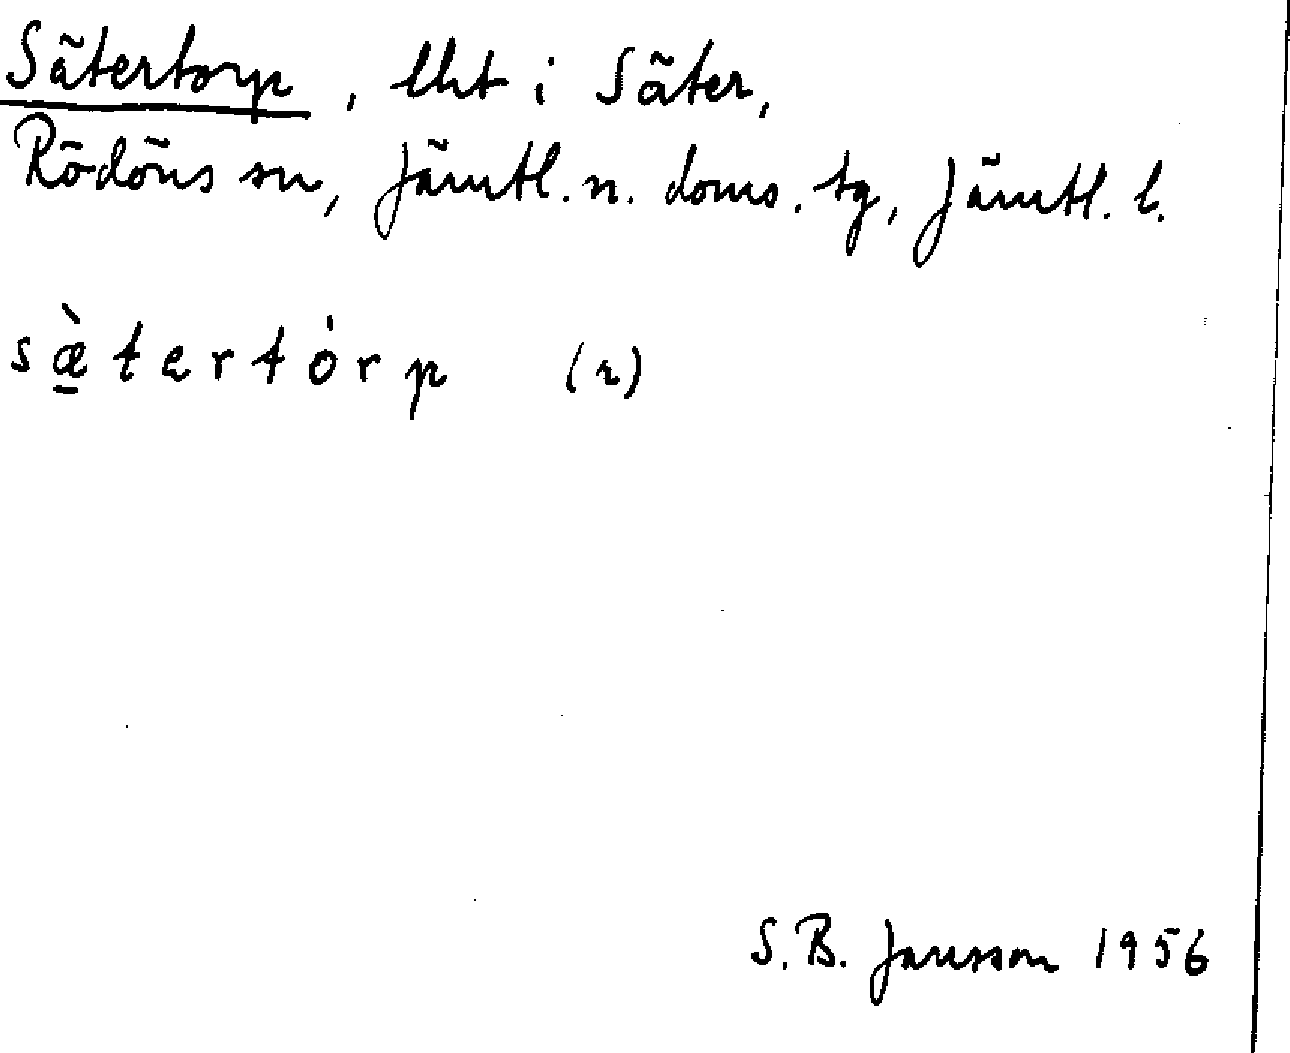 Sätertorp, lht i Säter,
Rödöns sn, Jämtl. n. doms. tg, Jämtl. l.
sæ̠̀tertȯrp (r)
S.B. Jansson 1956